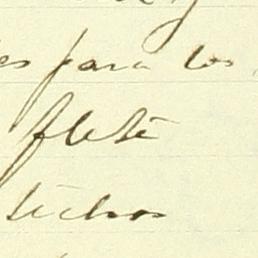 es para los
flete
techos